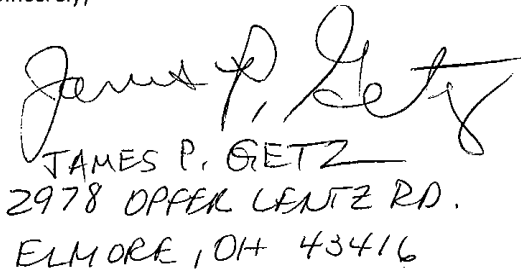 Sincerely,
James P. Getz
JAMES P. GETZ
2978 OPFER LENTZ RD.
ELMORE, OH 43416